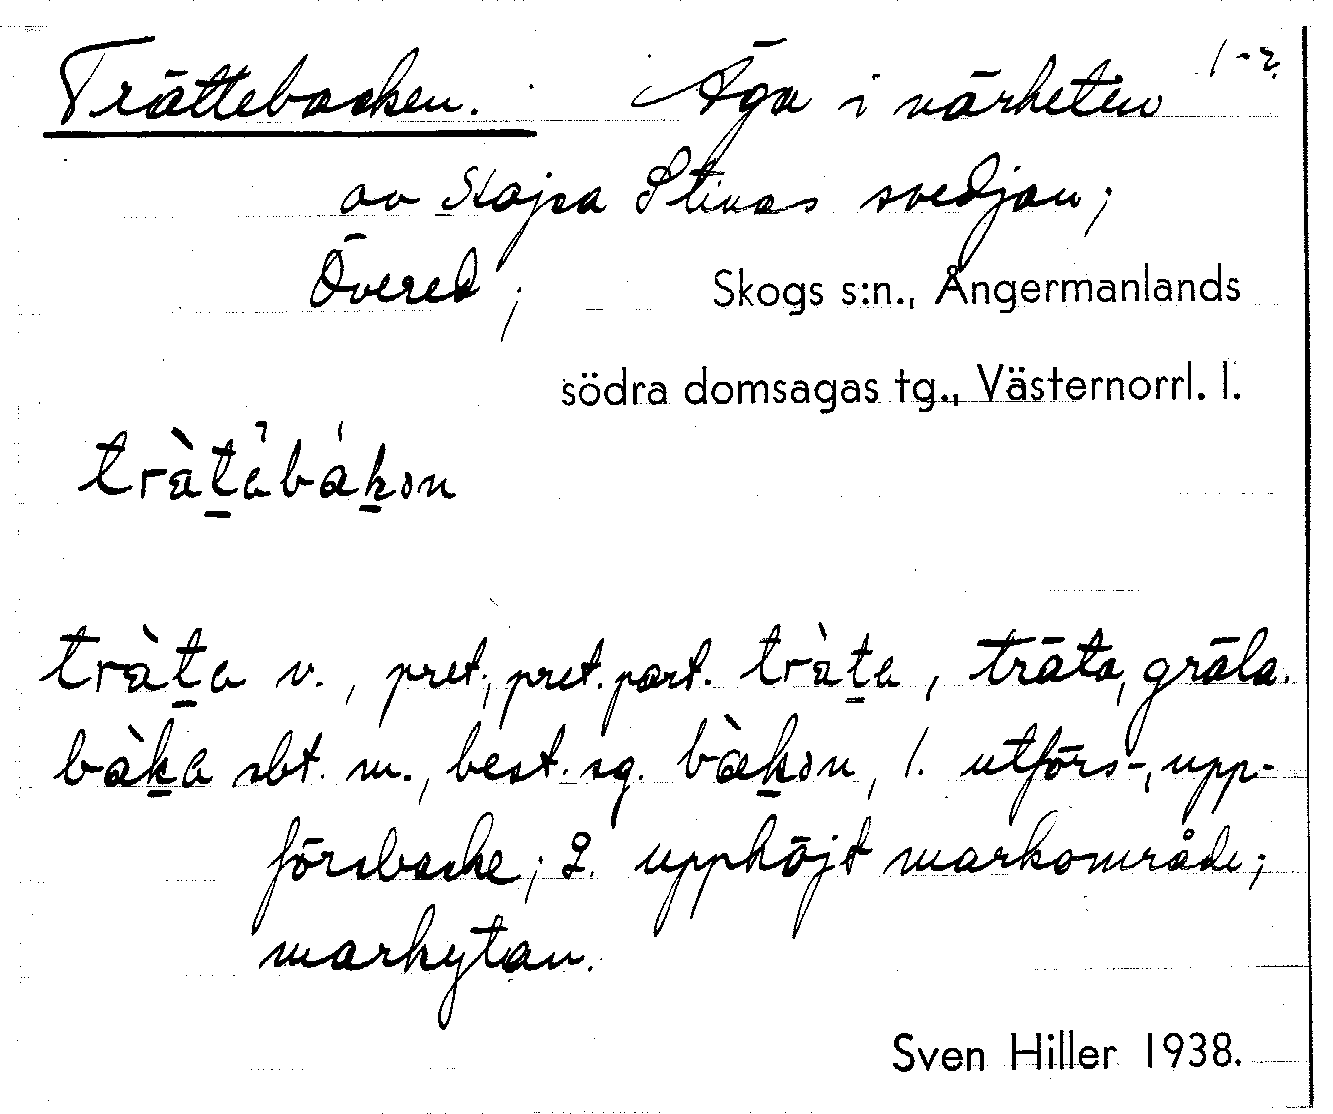 Trättebacken. Äga i närheten 1-2.
av Kajsa Stinas svedjan;
Övered; Skogs s:n., Ångermanlands
södra domsagas tg., Västernorrl. l.
tràt̠ebák̠ən
tràt̠a v., pret., pret. part. tràt̠a, träta, gräla.
bàk̠a sbt. m., best. sg. bàk̠ən, 1. utförs-, upp-
försbacke; 2. upphöjt markområde;
markytan.
Sven Hiller 1938.